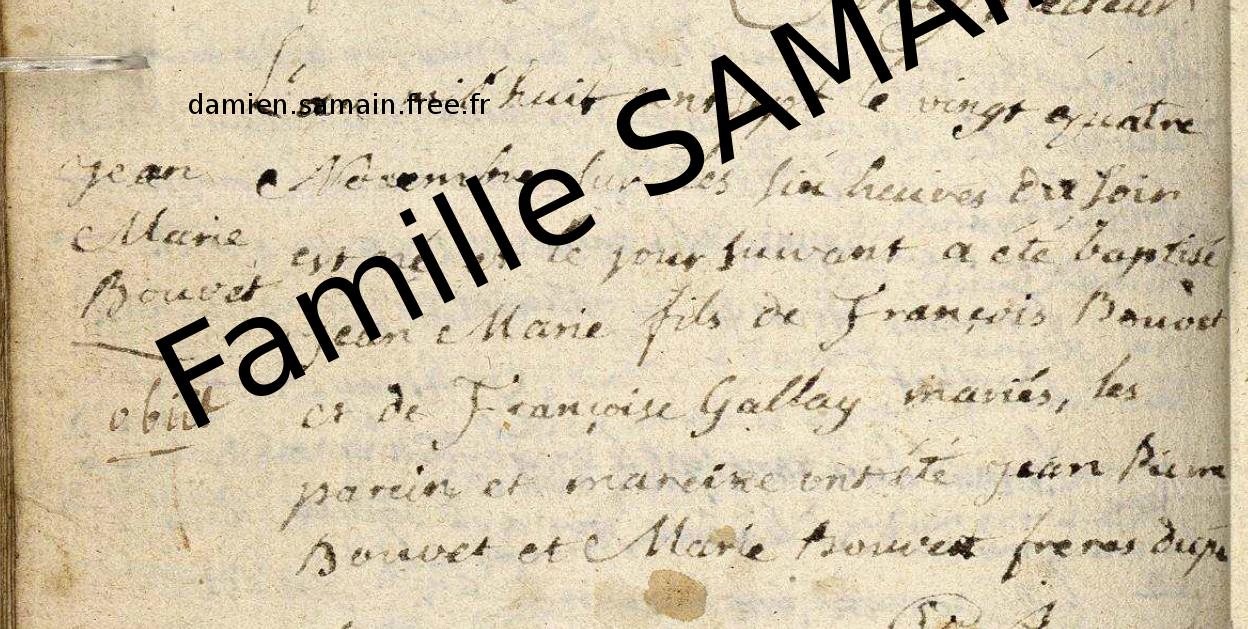 L'an mil huit cent sept le vingt quatre
Novembre sur les six heures du soir
est né et le jour suivant a été baptisé
jean Marie fils de François Bouvet
et de Françoise Gallay mariés, les
parein et mareine ont été jean Pierre
Bouvet et Marie Bouvet freres du
jean
Marie
Bouvet
obiit
damien.samain.free.fr
Famille SAMAI